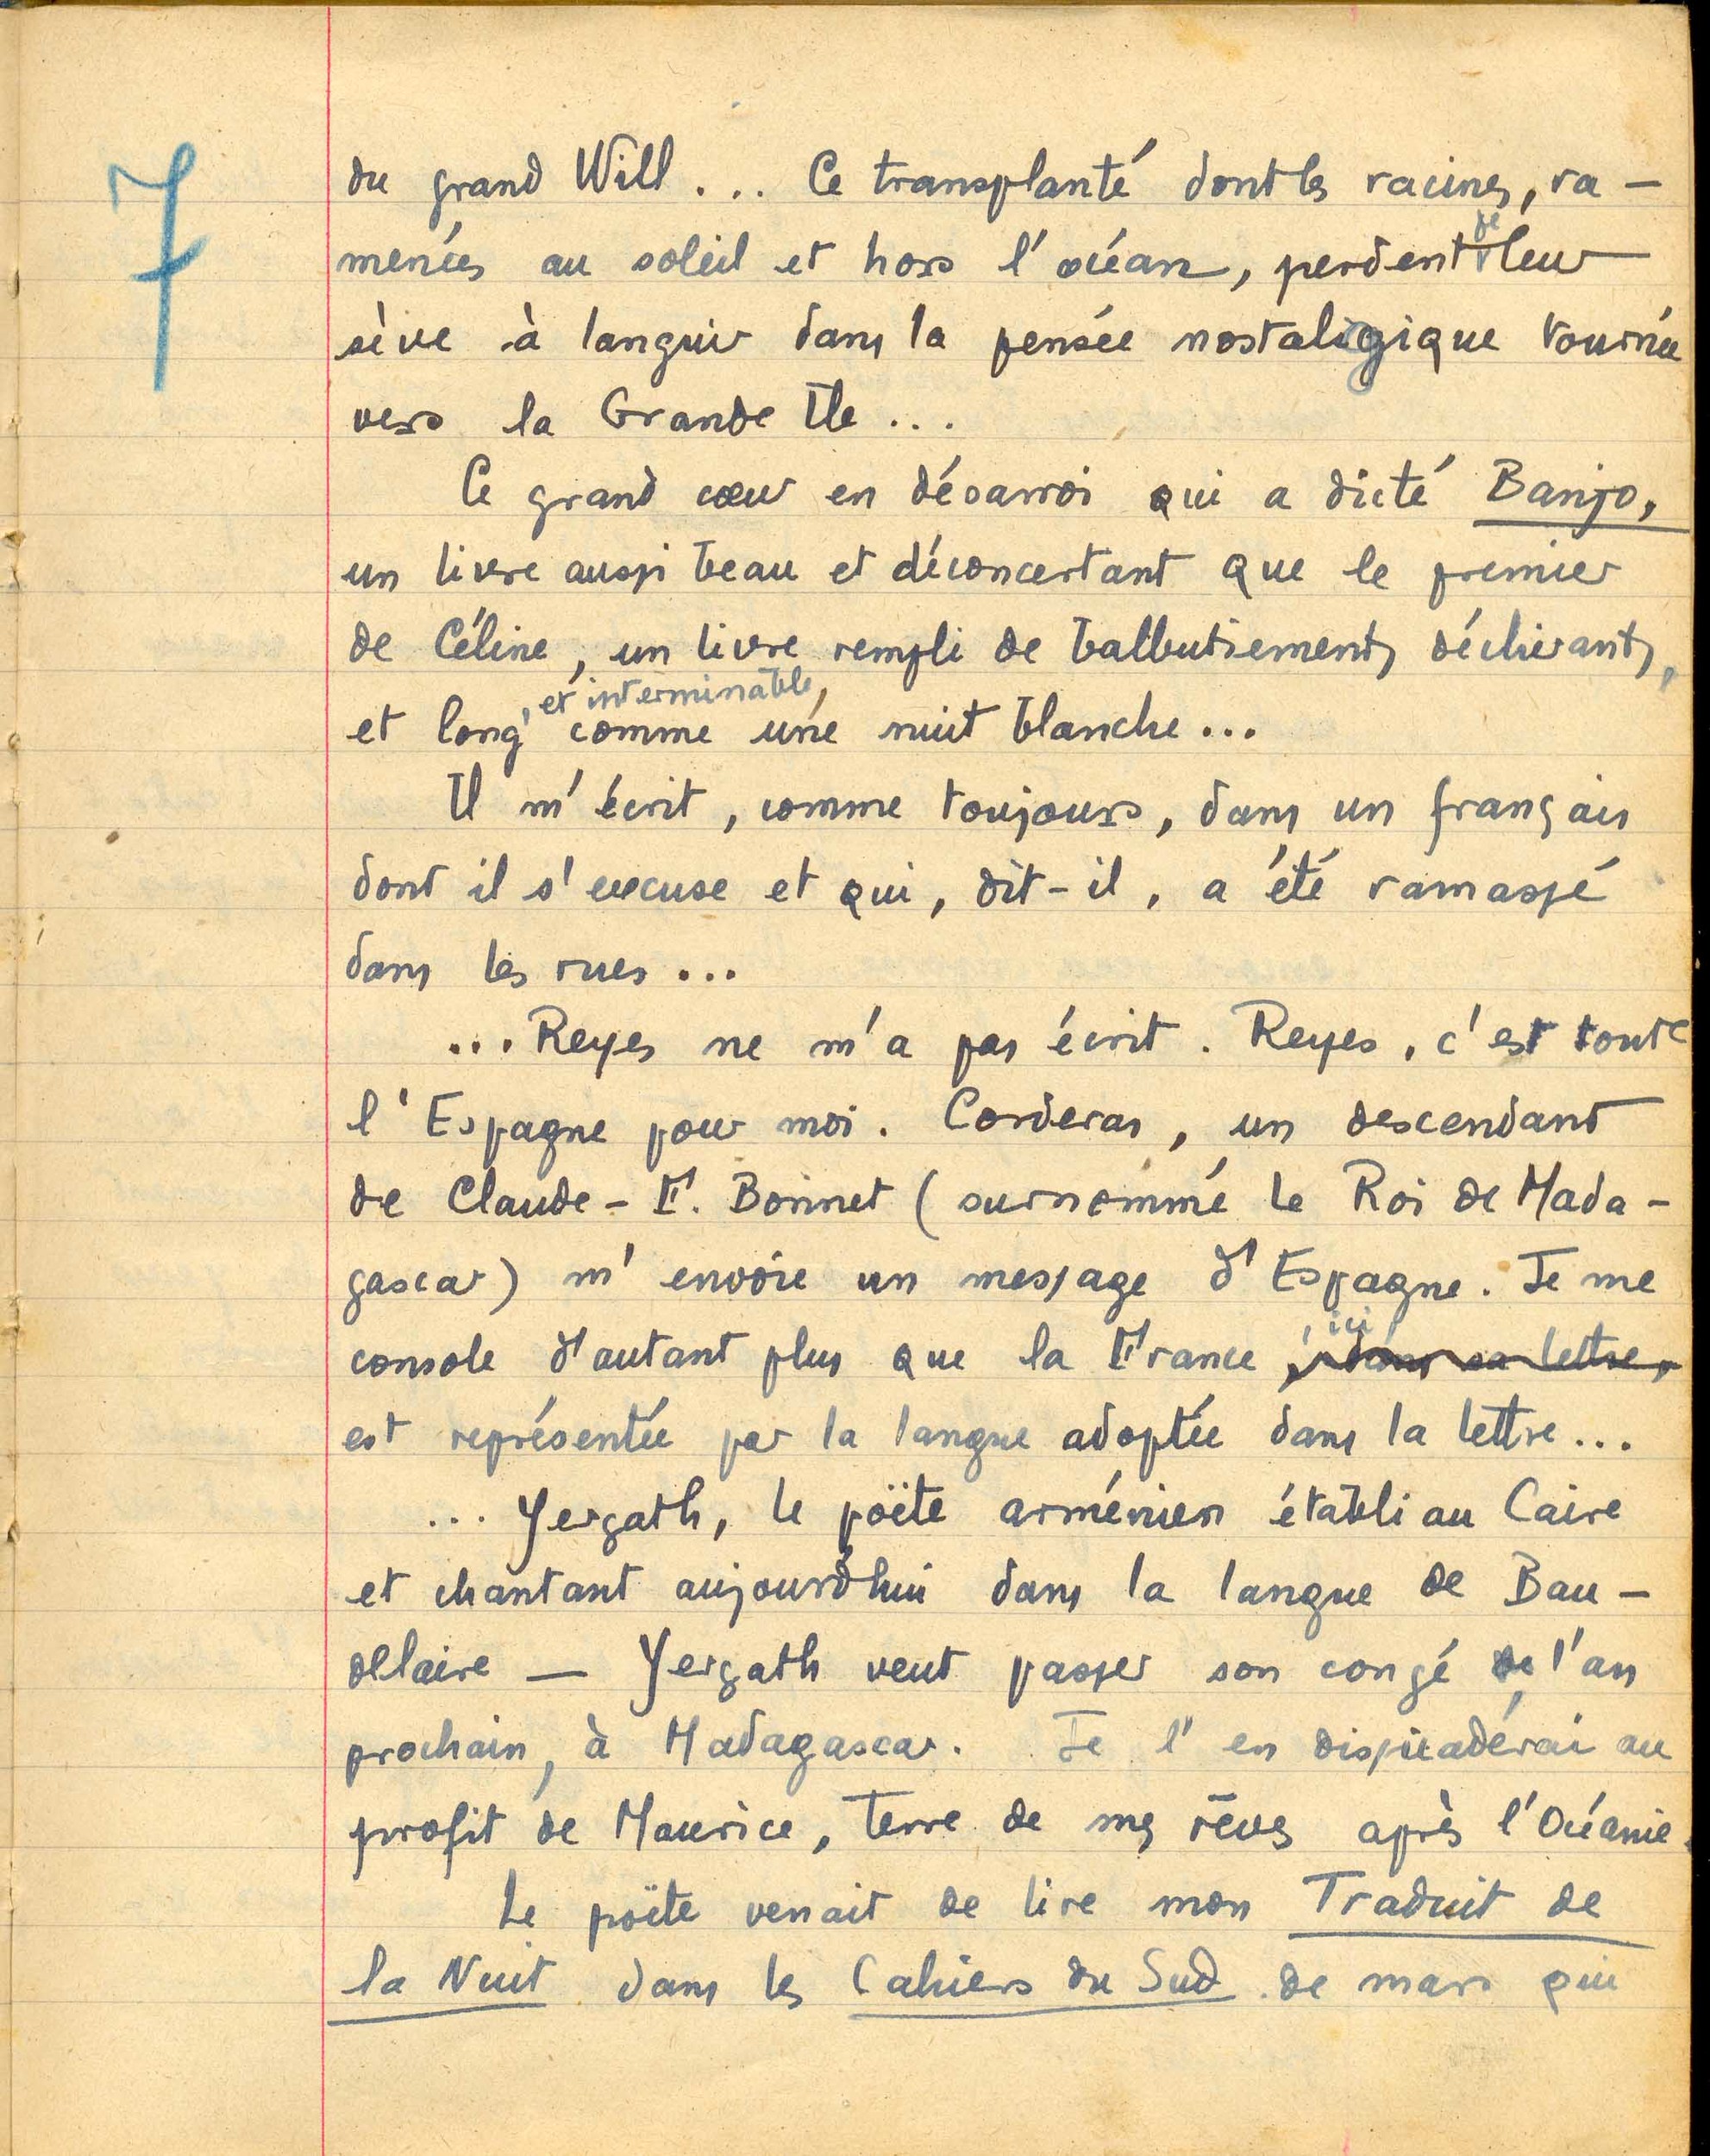 7
du grand Will... Ce transplanté dont les racines, ra-
menées au soleil et hors l'océan, perdent de leur
sève à languir dans la pensée nostalgique tournée
vers la Grande Ile...
Ce grand cœur en désarroi qui a dicté Banjo,
un livre aussi beau et déconcertant que le premier
de Céline, un livre rempli de balbutiements déchirants,
et long, et interminable, comme une nuit blanche...
Il m'écrit, comme toujours, dans un français
dont il s'excuse et qui, dit-il, a été ramassé
dans les rues...
...Reyes ne m'a pas écrit. Reyes, c'est toute
l'Espagne pour moi. Corderas, un descendant
de Claude-F. Bonnet (surnommé le Roi de Mada-
gascar) m'envoie un message d'Espagne. Je me
console d'autant plus que la France, ici, dans sa lettre,
est représentée par la langue adoptée dans la lettre...
... Yergath, le poëte arménien établi au Caire
et chantant aujourd'hui dans la langue de Bau-
delaire — Yergath veut passer son congé de l'an
prochain, à Madagascar. Je l'en dissuaderai au
profit de Maurice, terre de mes rêves après l'Océanie.
Le poëte venait de lire mon Traduit de
la Nuit dans les Cahiers du Sud de mars qui